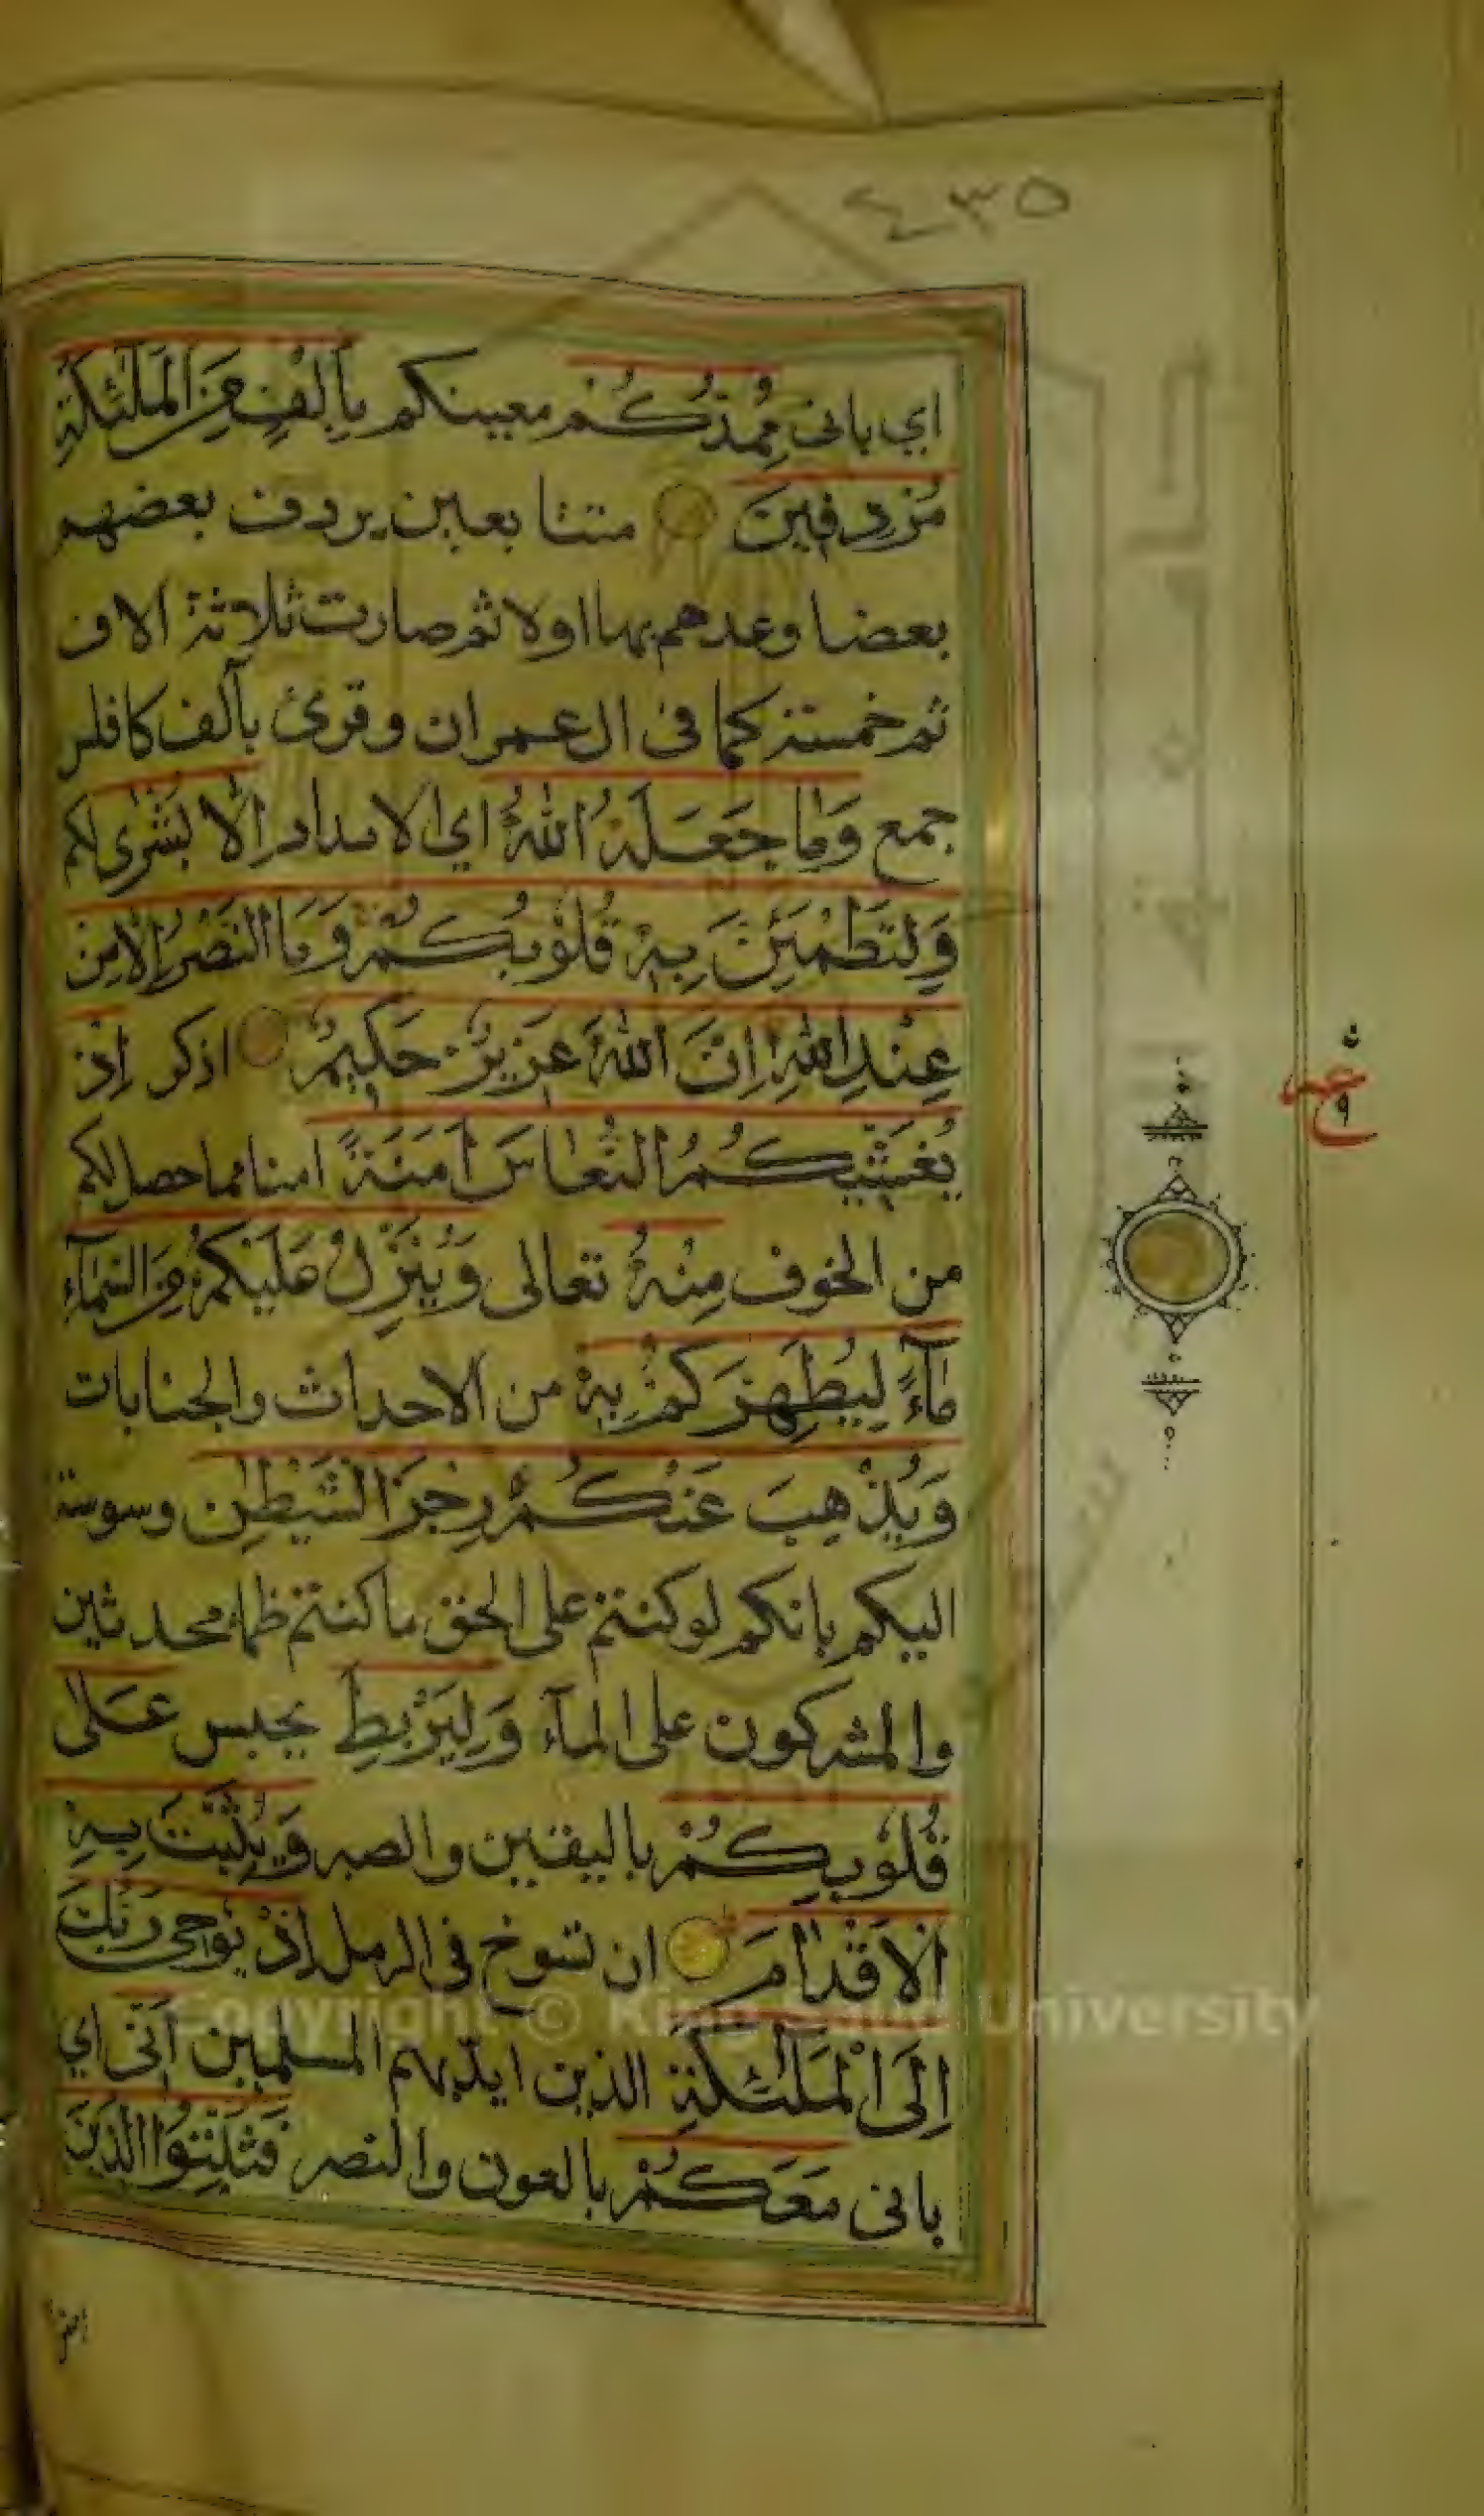 ٤٣٥
اي باني مُمِدُّكُمْ معينكم بِأَلْفٍ مِنَ الْمَلٰئِكَةِ
مُرْدِفِينَ متتابعين يردف بعضهم
بعضا وعدهم بها اولا ثم صارت ثلاثة الاف
ثم خمسة كما في ال عمران وقرئ بآلف كافلس
جمع وَمَا جَعَلَهُ اللهُ اي الامداد إِلَّا بُشْرٰى لكم
وَلِتَطْمَئِنَّ بِهِ قُلُوبُكُمْ وَمَا النَّصْرُ إِلَّا مِنْ
عِنْدِ اللهِ إِنَّ اللهَ عَزِيزٌ حَكِيمٌ اذكر إِذْ
يُغَشِّيكُمُ النُّعَاسَ أَمَنَةً امنا مما حصل لكم
من الخوف مِنْهُ تعالى وَيُنَزِّلُ عَلَيْكُمْ مِنَ السَّمَآءِ
مَآءً لِيُطَهِّرَكُمْ بِهِ من الاحداث والجنابات
وَيُذْهِبَ عَنْكُمْ رِجْزَ الشَّيْطٰنِ وسوسة
اليكم بانكم لو كنتم على الحق ما كنتم ظماء محدثين
والمشركون على المآء وَلِيَرْبِطَ يحبس عَلٰى
قُلُوبِكُمْ باليقين والصبر وَيُثَبِّتَ بِهِ
الْأَقْدَامَ ان تسوخ في الرمل إِذْ يُوحِي رَبُّكَ
إِلَى الْمَلٰئِكَةِ الذين ايد بهم المسلمين أَنِّي اي
باني مَعَكُمْ بالعون والنصر فَثَبِّتُوا الَّذِينَ
ع
٩
Copyright © King Saud University